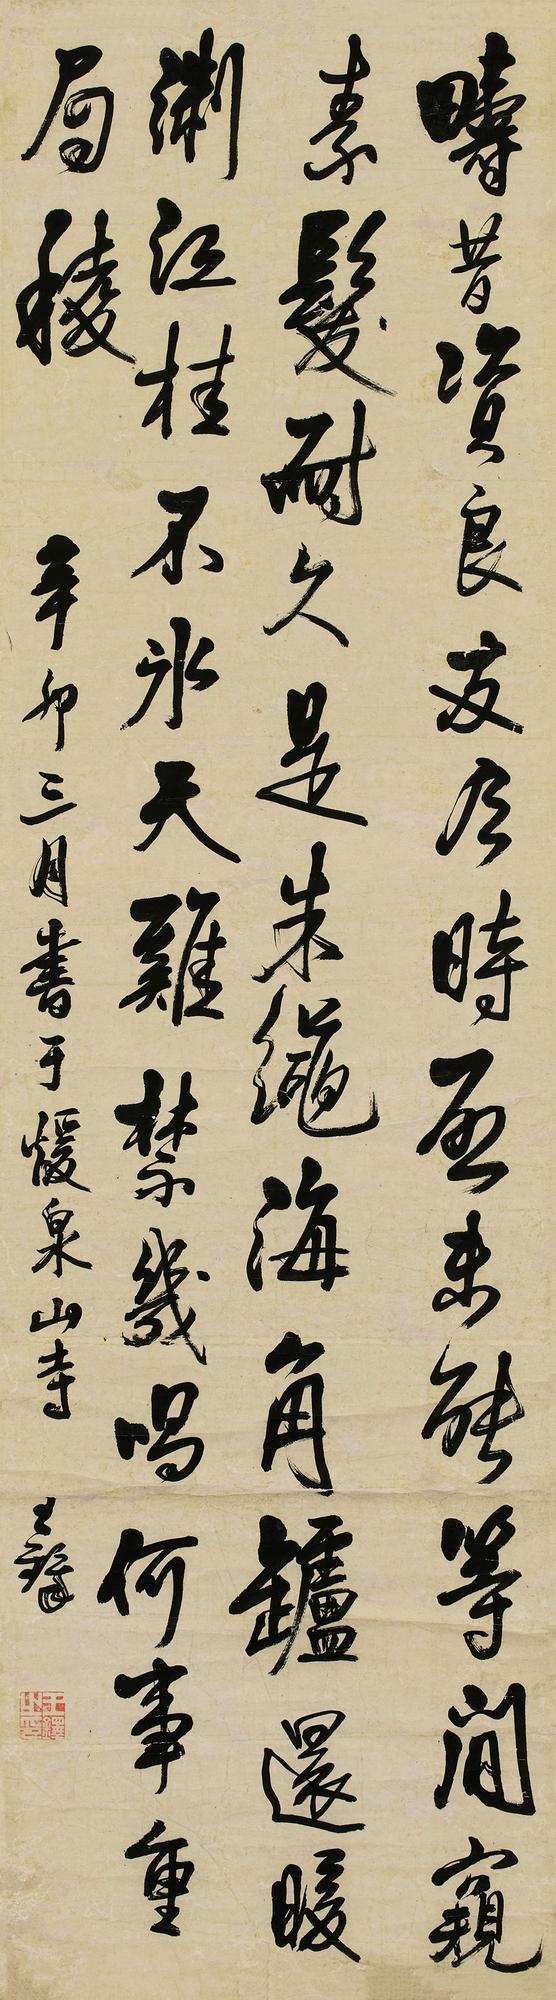 疇昔資良友今時亟未能等閒窺
素髮耐久是朱繩海角罏還暖
淛江桂不冰天雞禁幾唱何事重
局稜
辛卯三月書于煖泉山寺 王鐸
王鐸之印